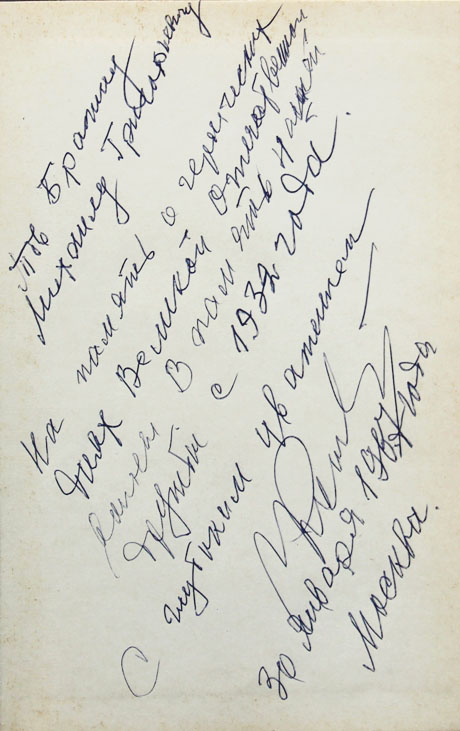 Тов Брагину
Михаилу Григорьевичу
На память о героических
днях Великой Отечественной
В память нашей
дружбы с 1932 года.
С глубоким уважением
30 января 1967 года
Москва.